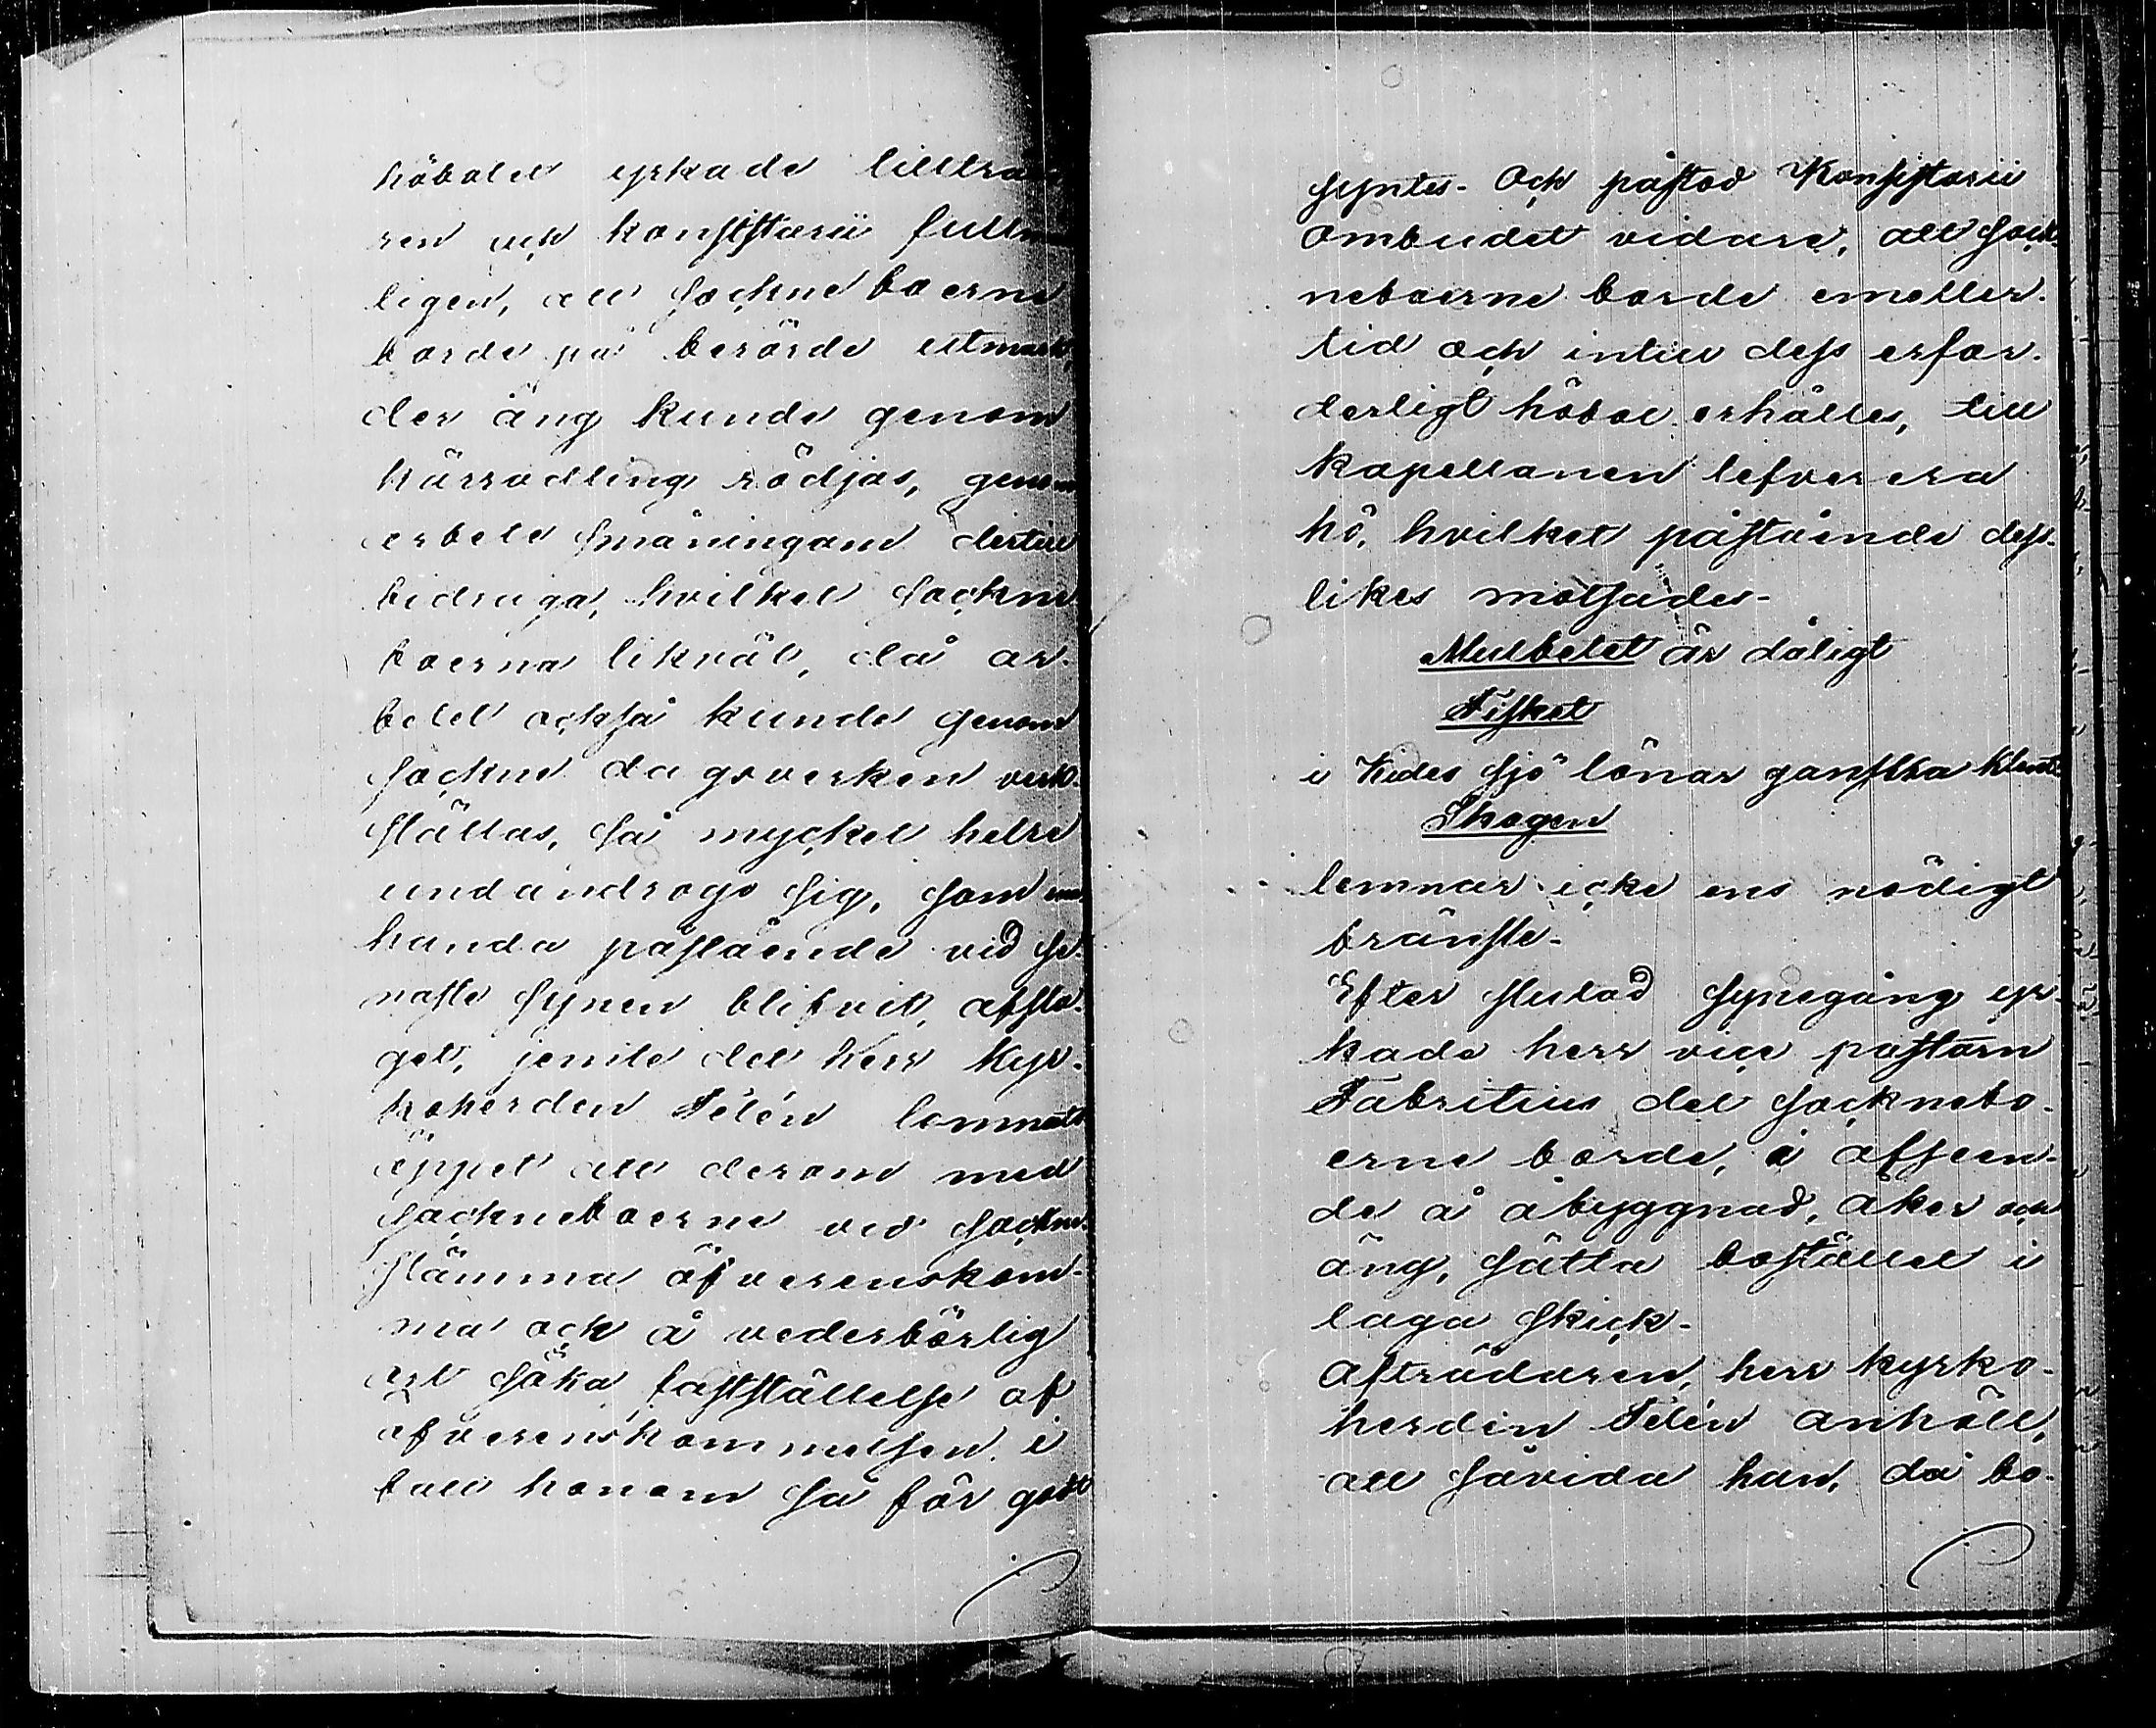 höbolet yrkade tillträda-
ren och konsistorii fullm
ligen, att sockneboerne
borde på berörde utmark,
der äng kunde genom
kärrodling rödjas, genom
arbete småningom dertill
bidraga, hvilket sockne
boerna likväl, då ar-
betet också kunde genom
sockne dagsverken verk-
ställas, så mycket helre
undandrogo sig, som
handa påstående vid se-
naste synen blifvit afsla-
get, jemte det herr Kyr-
koherden Télén lemnat
öppet att derom med
sockneboerne vid sockne-
stämma öfverenskom-
ma och å vederbörlig
ort söka fastställelse af
öfverenskommelsen i
fall honom så för godt
syntes. Och påstod Konsistorii
ombudet vidare, att sock-
neboerne borde emeller-
tid och intill dess erfor-
derligt höbol erhålles, till
kapellanen lefverera
hö, hvilket påstående dess-
likes motsades.
Mulbetet är dåligt
Fisket
i Kides sjö lönar ganska klent
Skogen
lemnar icke ens nödigt
bränsle.
Efter slutad synegång yr-
kade herr vice pastorn
Fabritius det socknebo-
erne borde, i afseen-
de å åbyggnad, åker och
äng, sätta bostället i
laga skick.
Afträdaren, herr kyrko-
herden Télén anhöll,
att såvida han, då bo-